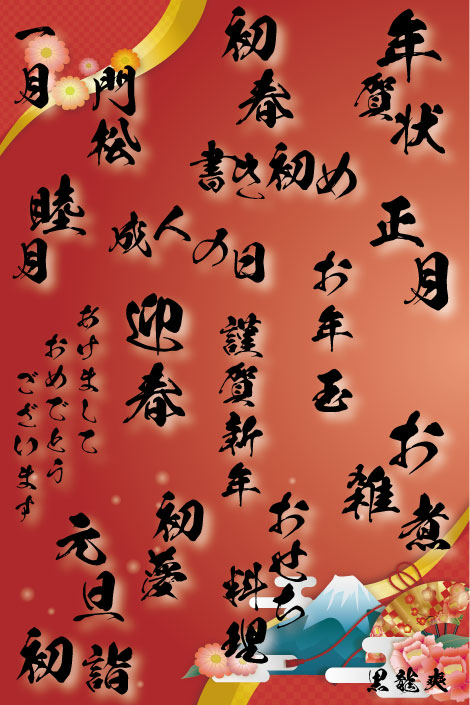 年賀状
正月
お雑煮
お年玉
初春
書き初め
謹賀新年
おせち料理
成人の日
迎春
初夢
門松
一月
睦月
あけまして
おめでとう
ございます
元旦
初詣
黒龍爽